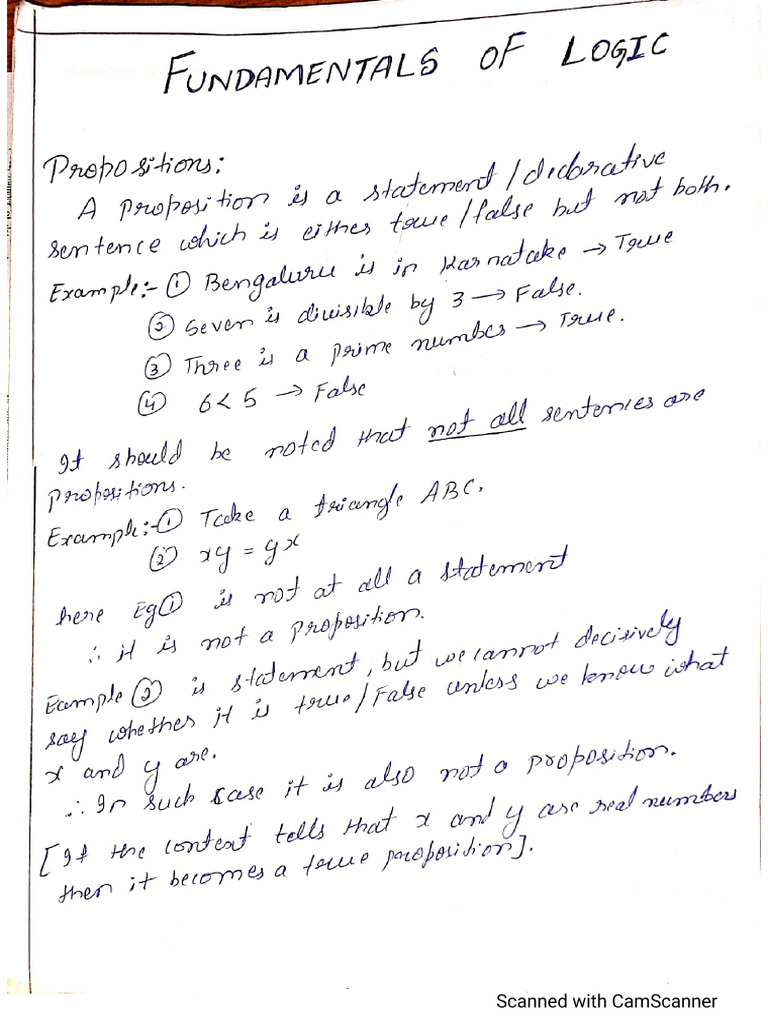 FUNDAMENTALS OF LOGIC
Propositions:
A proposition is a statement/declarative
sentence which is either true/false but not both.
Example:- ① Bengaluru is in Karnatake → True
② Seven is divisible by 3 → False.
③ Three is a prime number → True.
④ 6 < 5 → False
It should be noted that not all sentencies are
propositions.
Example:- ① Take a triangle ABC.
② xy = yx
here Eg ① is not at all a statement
∴ it is not a proposition.
Example ② is statement, but we cannot decisively
say whether it is true/False unless we know what
x and y are.
∴ In such case it is also not a proposition.
[If the context tells that x and y are real numbers
then it becomes a true proposition].
Scanned with CamScanner